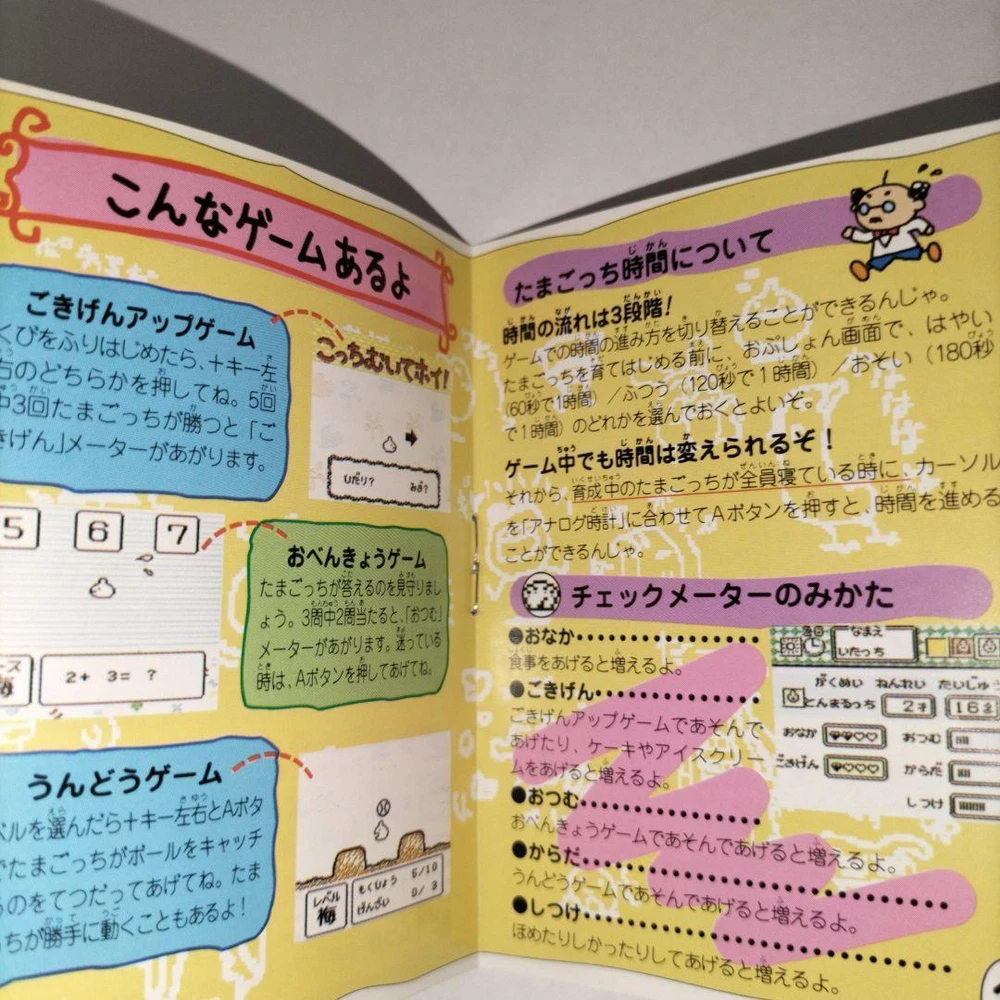 こんなゲームあるよ
ごきげんアップゲーム
くびをふりはじめたら、+キー左
右のどちらかを押してね。5回
中3回たまごっちが勝つと「ご
きげん」メーターがあがります。
こっちむいてホイ!
ひだり? みぎ?
5 6 7
2+ 3= ?
おべんきょうゲーム
たまごっちが答えるのを見守りまし
ょう。3問中2問当たると、「おつむ」
メーターがあがります。迷っている
時は、Aボタンを押してあげてね。
うんどうゲーム
ベルを選んだら+キー左右とAボタ
でたまごっちがボールをキャッチ
るのをてつだってあげてね。たま
ちが勝手に動くこともあるよ!
レベル
梅
もくひょう 5/10
げんざい 0/ 3
たまごっち時間について
時間の流れは3段階!
ゲームでの時間の進み方を切り替えることができるんじゃ。
たまごっちを育てはじめる前に、おぷしょん画面で、はやい
(60秒で1時間)/ふつう(120秒で1時間)/おそい(180秒
で1時間)のどれかを選んでおくとよいぞ。
ゲーム中でも時間は変えられるぞ!
それから、育成中のたまごっちが全員寝ている時に、カーソル
を「アナログ時計」に合わせてAボタンを押すと、時間を進める
ことができるんじゃ。
チェックメーターのみかた
●おなか
食事をあげると増えるよ。
●ごきげん
ごきげんアップゲームであそんで
あげたり、ケーキやアイスクリー
ムをあげると増えるよ。
●おつむ
おべんきょうゲームであそんであげると増えるよ。
●からだ
うんどうゲームであそんであげると増えるよ。
●しつけ
ほめたりしかったりしてあげると増えるよ。
なまえ
いたっち
がくめい ねんれい たいじゅ
とんまるっち 2才 16
おなか おつむ
ごきげん からだ
しつけ